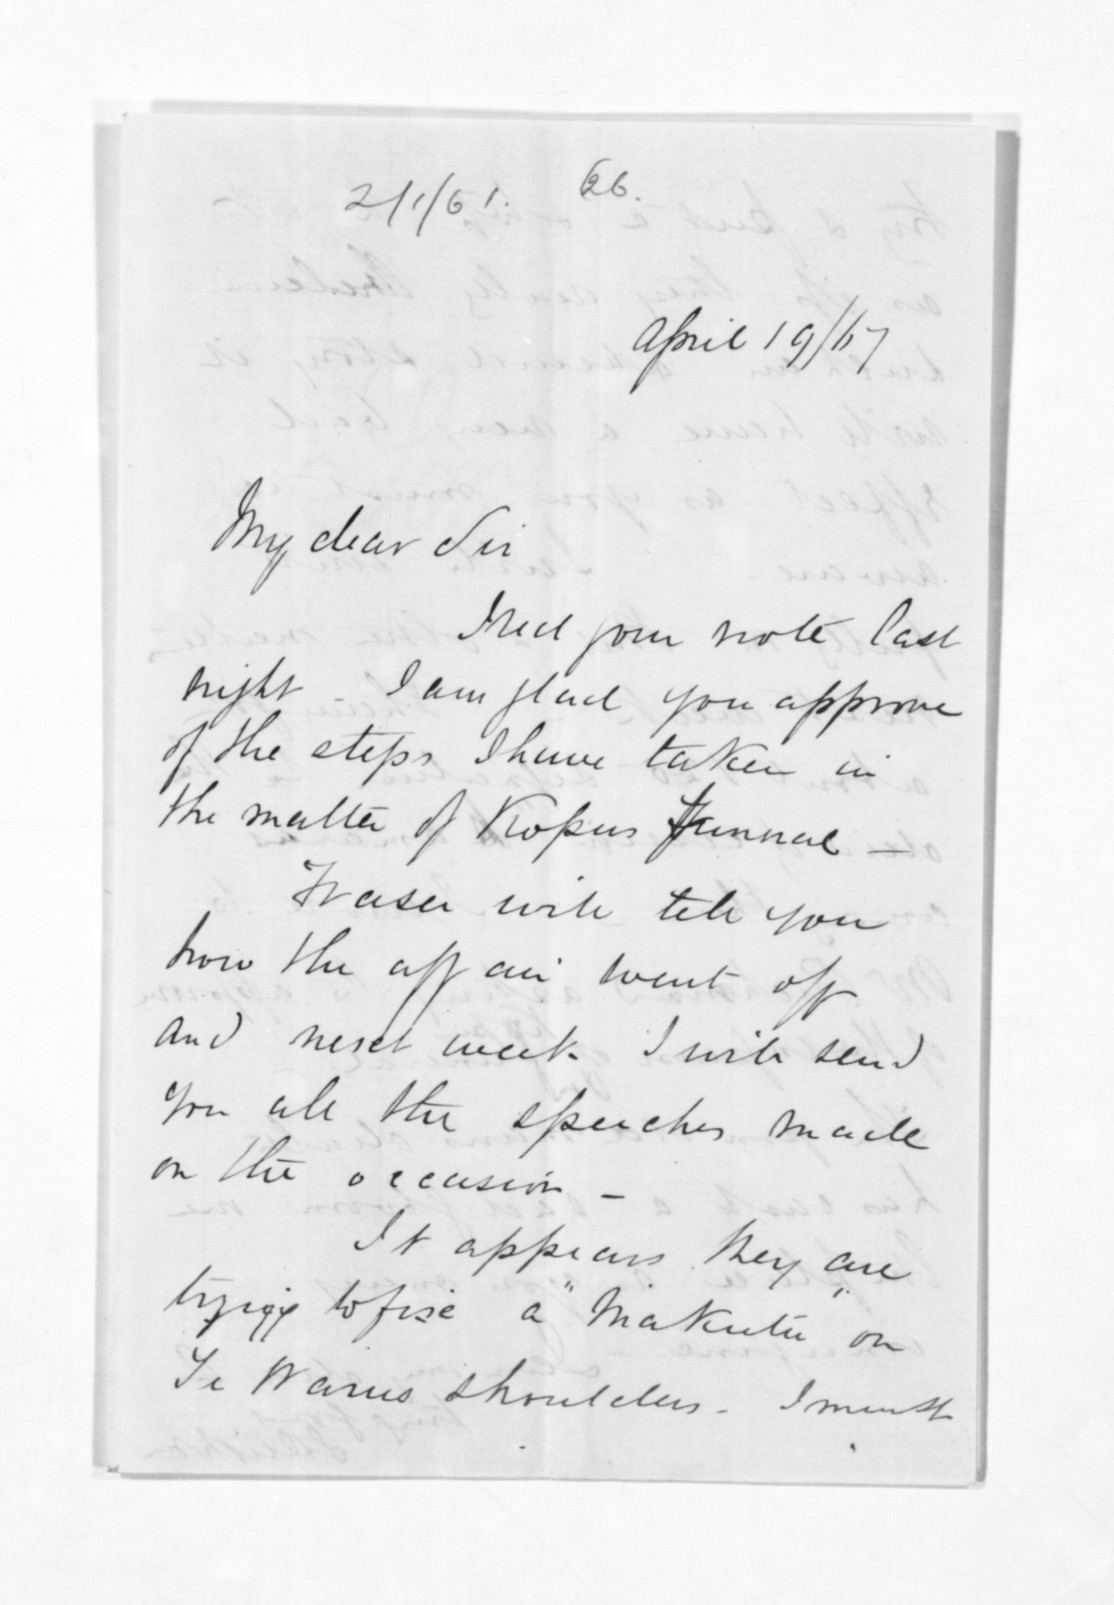 2/1/61. 26.
April 19/67
My dear Sir
I recd your note last
night - I am glad you approve
of the steps I have taken in
the matter of Kopus funeral -
Fraser will tell you
how the affair went off
and next week I will send
you all the speeches made
on the occasion -
It appears they are
trying to fix a "Makutu" on
Te Warus shoulders - I must